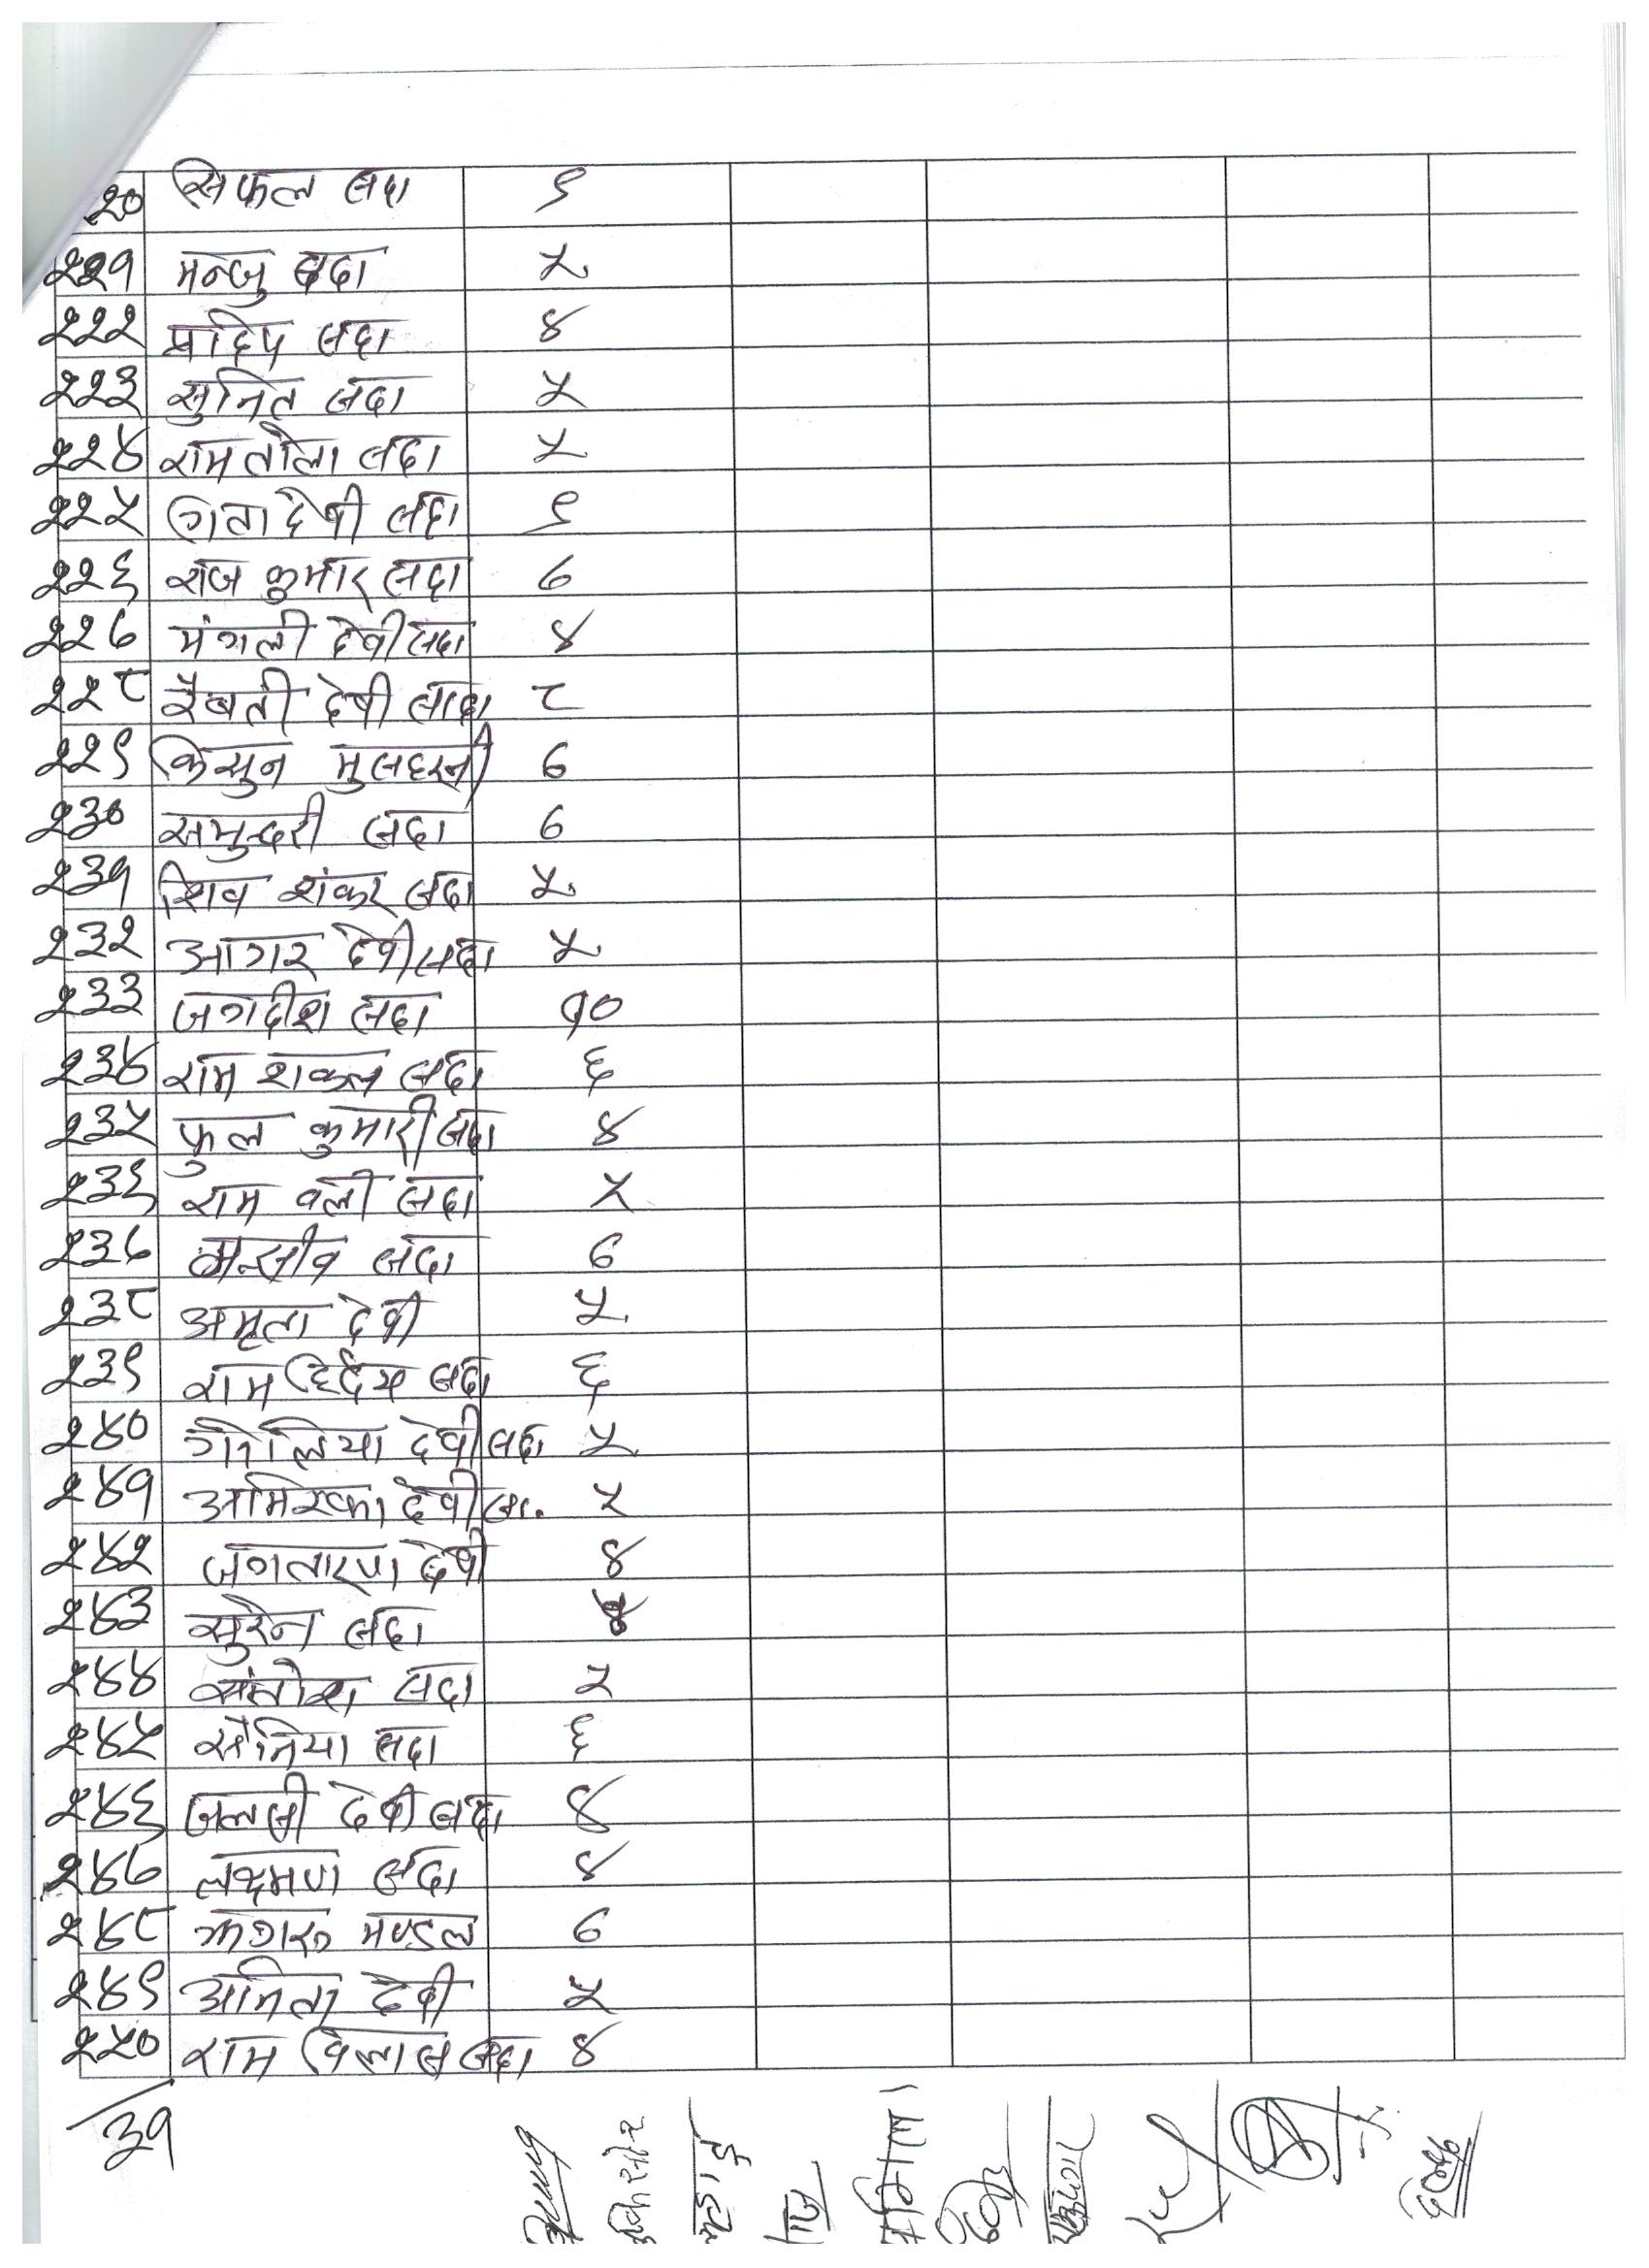 २२० सिफल सदा ९
२२१ मन्जु सदा ५
२२२ प्रदिप सदा ४
२२३ सुनित सदा ५
२२४ राम तोला सदा ५
२२५ गिता देवी सदा ९
२२६ राज कुमार सदा ७
२२७ मंगली देवी सदा ४
२२८ रैबती देवी सादा ८
२२९ किसुन मुसहरनी ७
२३० समुन्दरी सदा ७
२३१ शिव शंकर सदा ५
२३२ आगर देवी सदा ५
२३३ जगदीश सदा १०
२३४ राम शकल सदा ६
२३५ फुल कुमारी सदा ४
२३६ राम वली सदा ५
२३७ सदा ७
२३८ अमृता देवी ५
२३९ राम हिर्दय सदा ६
२४० गोलिया देवी सदा ५
२४१ अमिरका देवी स. ५
२४२ जगतारण देवी ४
२४३ सुरेन सदा
२४४ संतोश सदा ५
२४५ सोनिया सदा ६
२४६ जलसी देवी सदा ४
२४७ लक्ष्मण सदा ४
२४८ झगरु मण्डल ७
२४९ अनिता देवी ५
२५० राम विलास सदा ४
३१